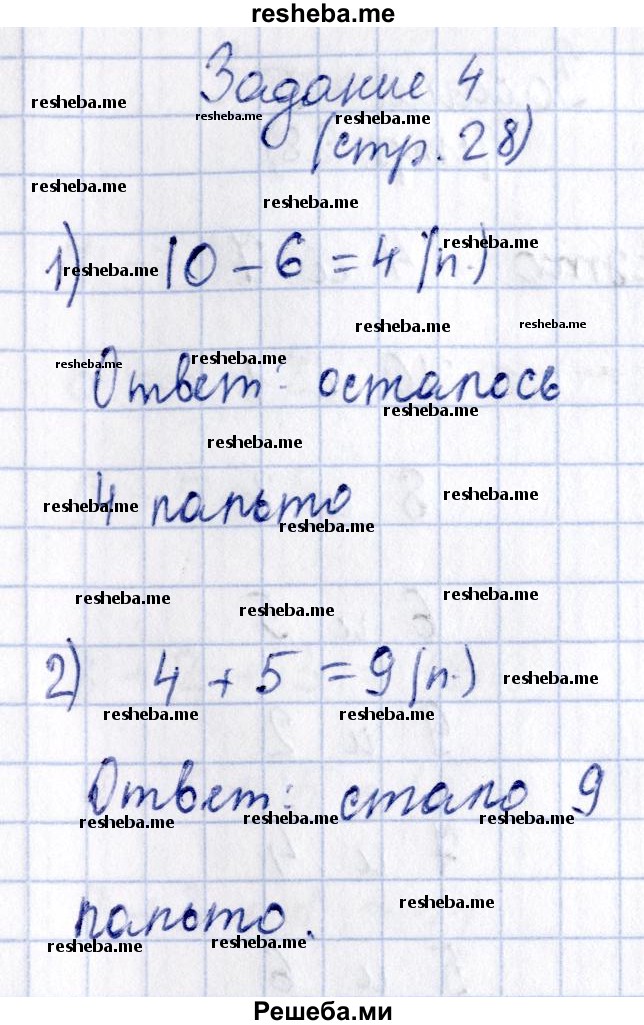 resheba.me
Задание 4
resheba.me
resheba.me
resheba.me
(стр. 28)
resheba.me
resheba.me
1) 10 - 6 = 4 (п.)
resheba.me
resheba.me
resheba.me
resheba.me
resheba.me
resheba.me
Ответ: осталось
resheba.me
resheba.me
4 пальто
resheba.me
resheba.me
resheba.me
resheba.me
resheba.me
resheba.me
2) 4 + 5 = 9 (п.)
resheba.me
resheba.me
resheba.me
Ответ: стало 9
resheba.me
resheba.me
resheba.me
пальто.
resheba.me
resheba.me
resheba.me
Решеба.ми